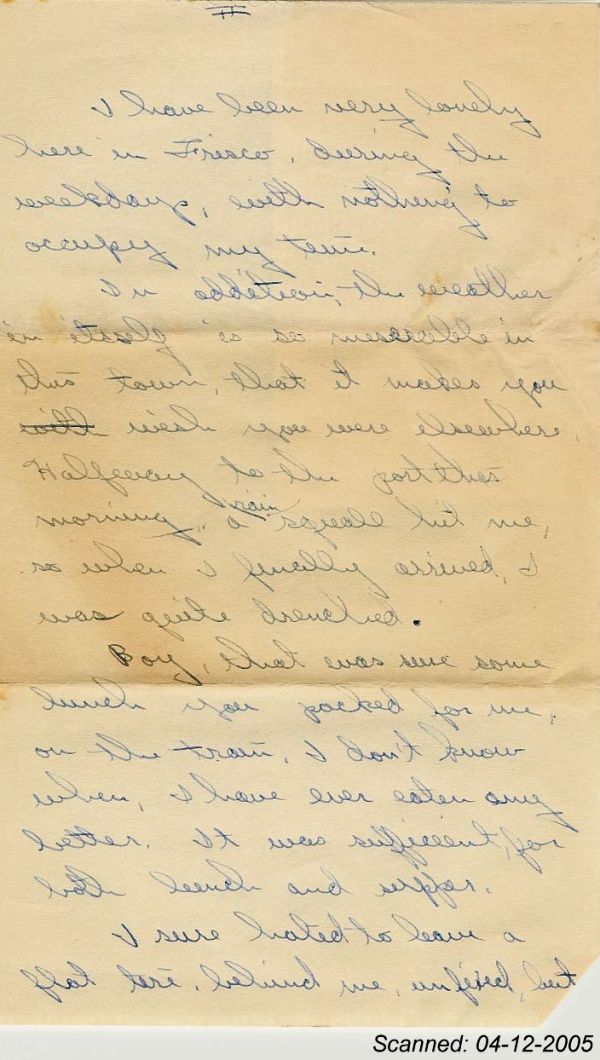 I have been very lonely
here in Frisco, during the
weekdays, with nothing to
occupy my time.
In addition, the weather
in itself is so miserable in
this town, that it makes you
with wish you were elsewhere.
Halfway to the port this
morning, a rain squall hit me,
so when I finally arrived, I
was quite drenched.
Boy, that was sure some
lunch you packed for me,
on the train, I don't know
when, I have ever eaten any
better. It was sufficient, for
both lunch and supper.
I sure hated to leave a
flat tire, behind me, unfixed, but
Scanned: 04-12-2005